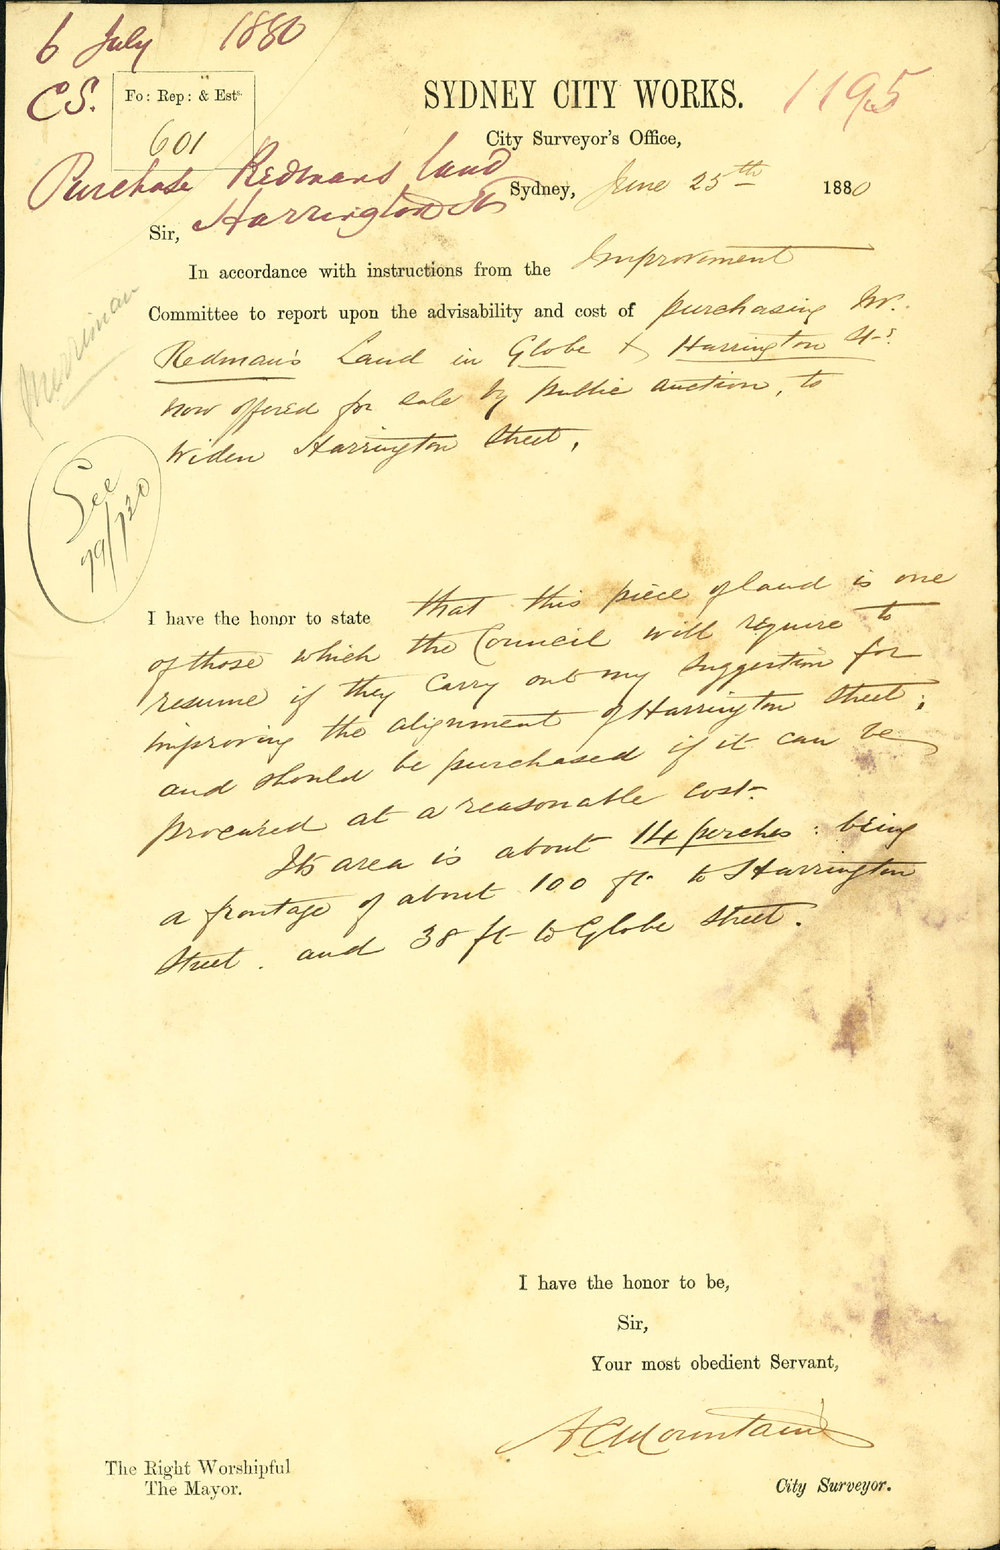 6 July 1880
CS.
Fo: Rep: & Ests.
601
1195
Purchase Redmans land
Harrington St
SYDNEY CITY WORKS.
City Surveyor's Office,
Sydney, June 25th 1880
Sir,
In accordance with instructions from the Improvement
Committee to report upon the advisability and cost of purchasing Mr.
Redman's Land in Globe & Harrington Sts
now offered for sale by public auction, to
widen Harrington Street.
Merriman
See
79/730
I have the honor to state that this piece of land is one
of those which the Council will require to
resume if they carry out my suggestion for
improving the alignment of Harrington Street;
and should be purchased if it can be
procured at a reasonable cost.
Its area is about 14 perches: being
a frontage of about 100 ft. to Harrington
Street. and 38 ft to Globe Street.
I have the honor to be,
Sir,
Your most obedient Servant,
A C Mountain
City Surveyor.
The Right Worshipful
The Mayor.